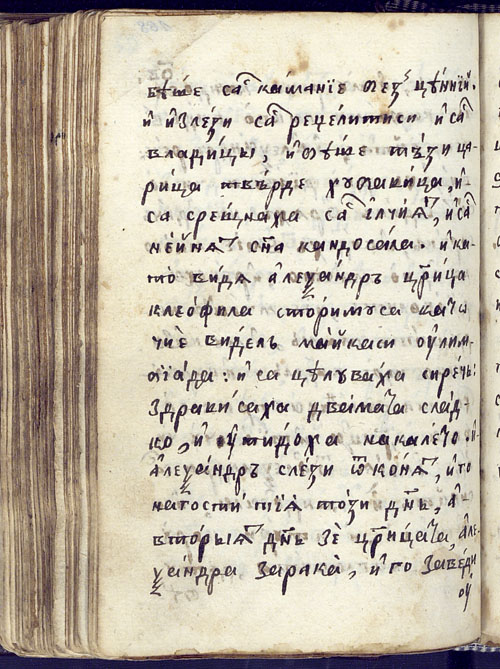 бѣше са҄ камѣнїе без цѣннїй.
и излѣзи са҄ рецелитиси и са҄
владицы, и бѣше тъзи ца-
рица твърде хубавица, и-
са срещнаха са҄ илчиꙗ҄, и са҄
нейнѧ҄ сн҃а кандосала. и ки-
то видѧ алеѯандръ цр҃ица
клеофила сторимуса като
чиѐ виделъ майкаси оулим-
пїада: и са цѣлуваха сиречь
здрависаха двамата слад-
ко, и ѿтидоха накалето. и-
алеѯандръ слези ѿ конѧ҄, и го
нагости тїѧ този дн҃ь, а-
вторыѧ҄ дн҃ь зе цр҃ицата, але-
ѯандра зарака, и го заведи
оу